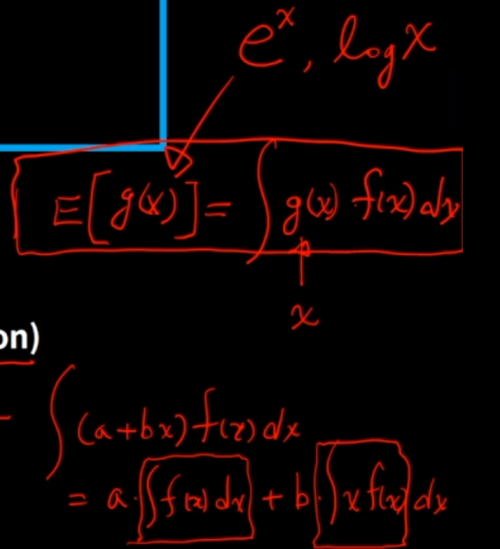 e^x, log x
E[g(x)] = ∫ g(x) f(x) dx
x
on)
∫ (a+bx) f(x) dx
= a·∫ f(x) dx + b·∫ x f(x) dx